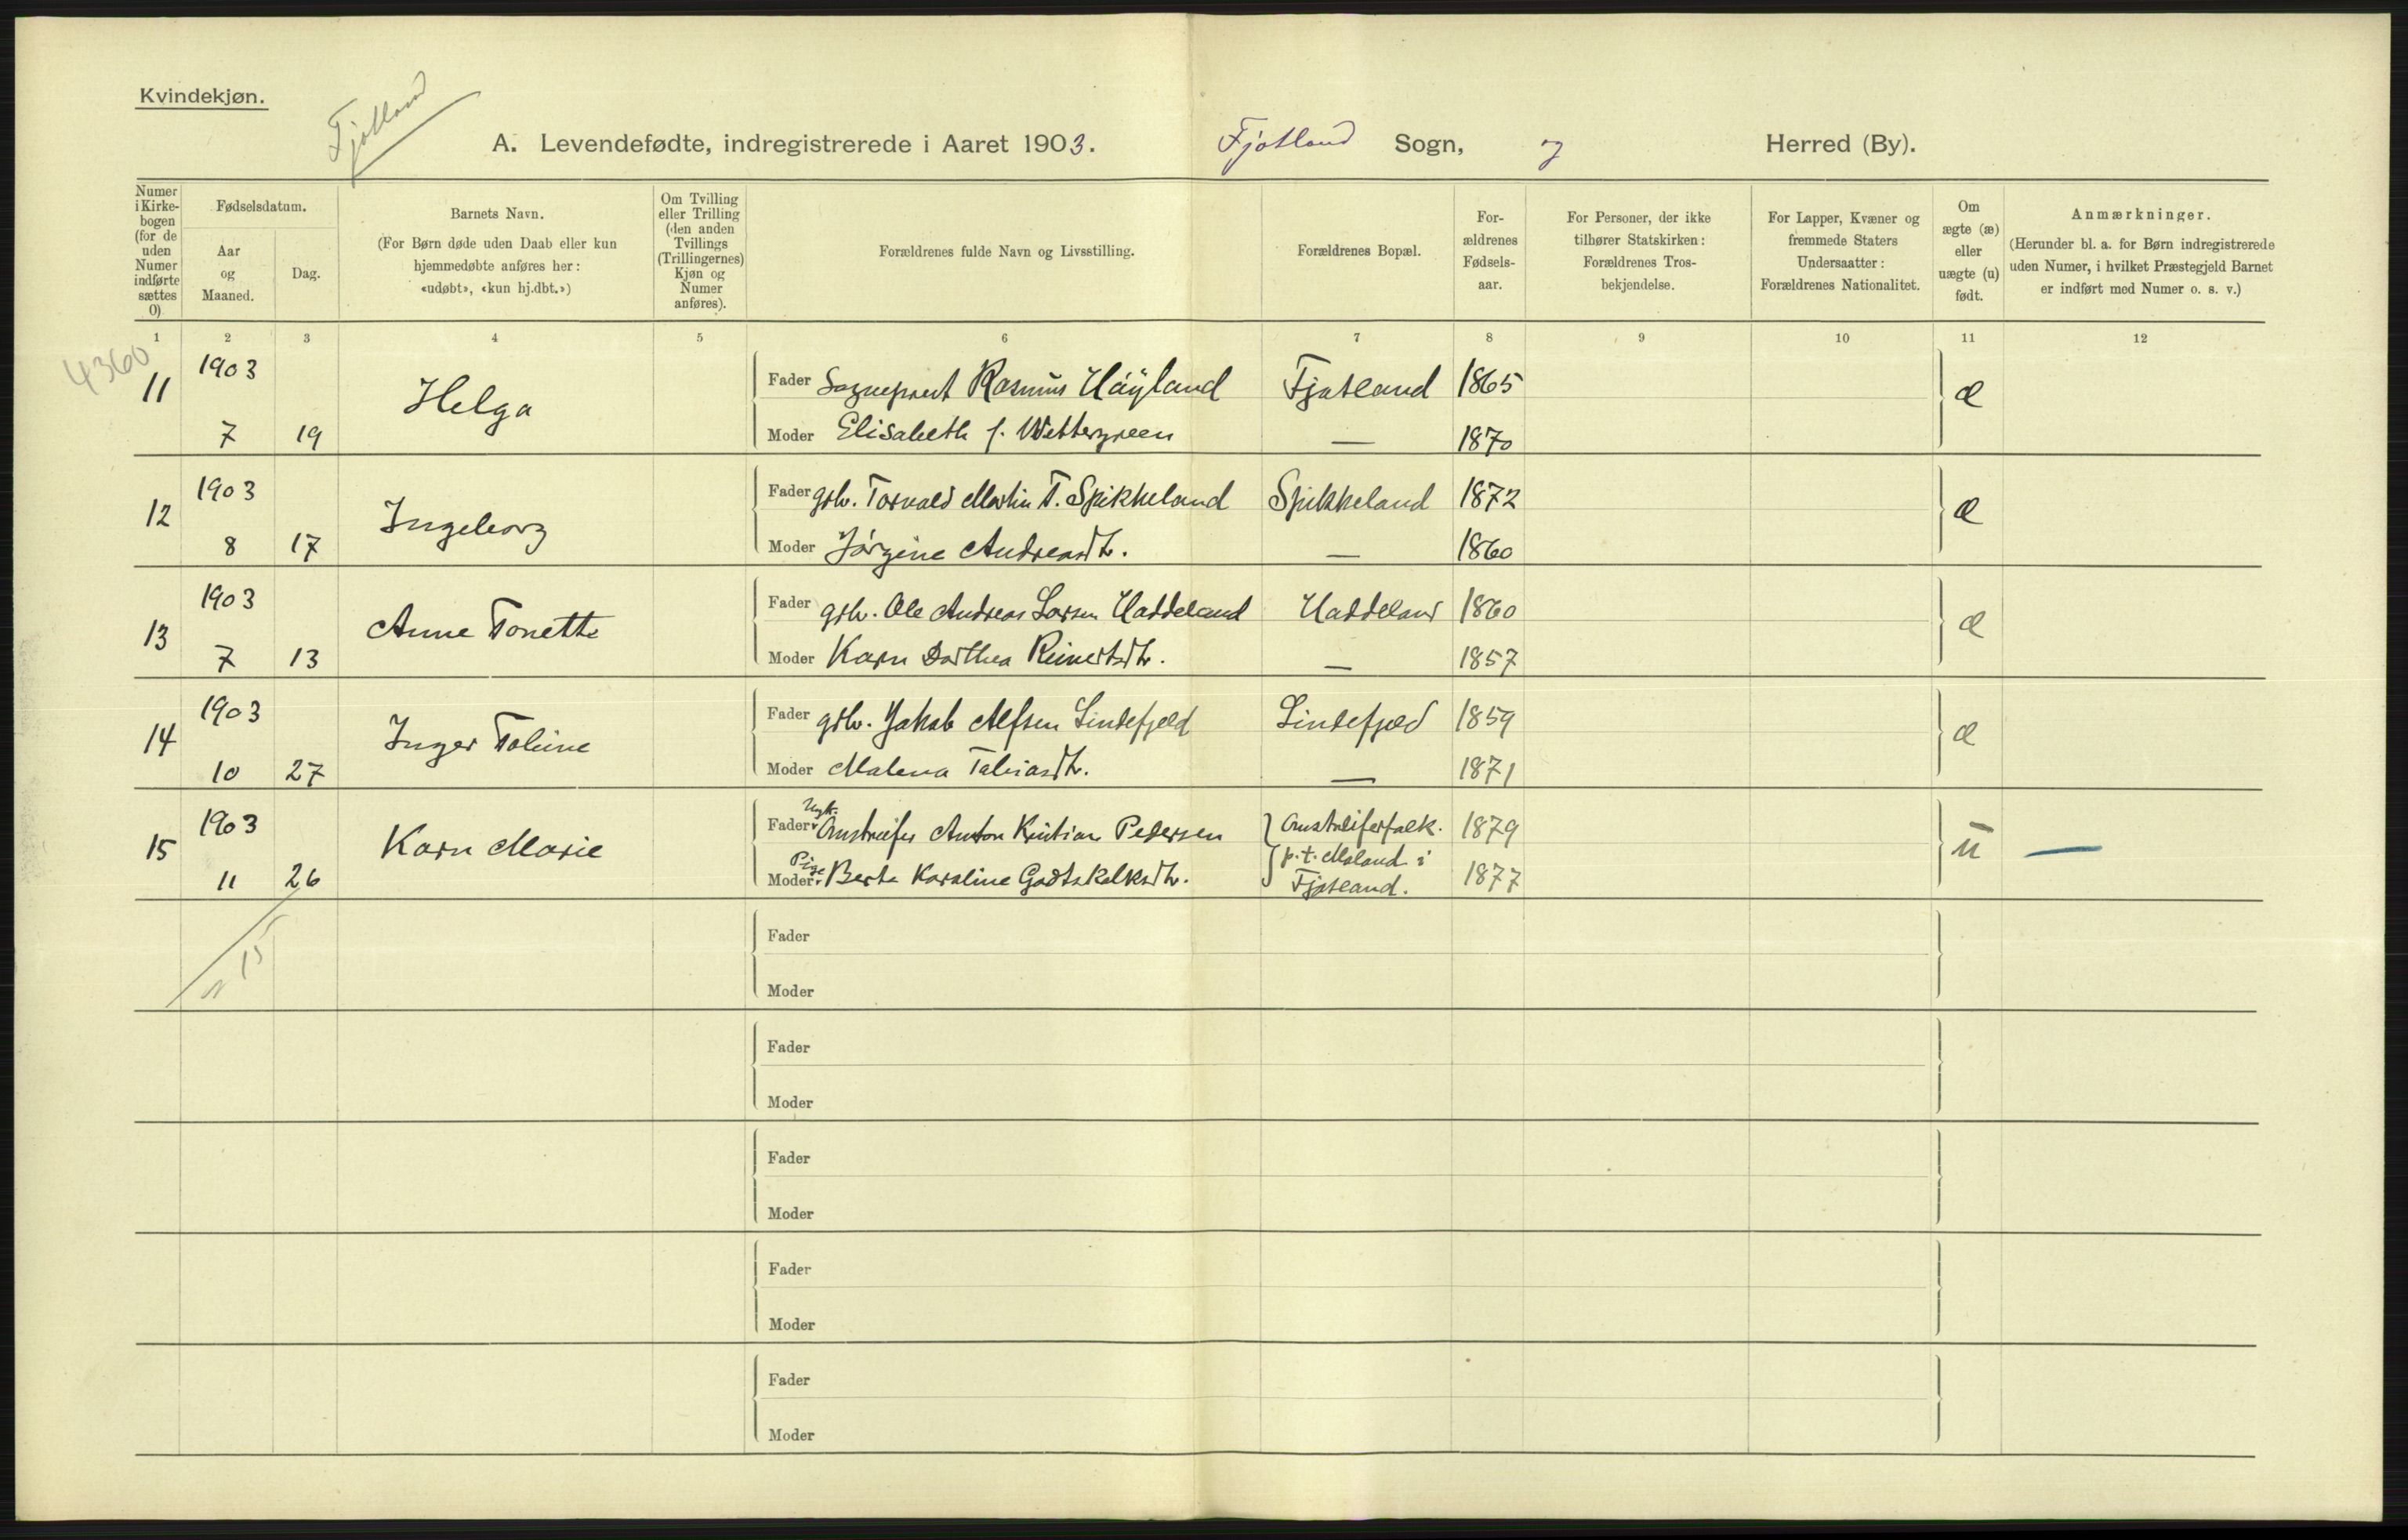 Kvindekjøn.
Fjotland
A. Levendefødte, indregistrerede i Aaret 1903. Fjotland Sogn, og Herred (By).
Numer i Kirkebogen (for de uden Numer indførte sættes 0)
Fødselsdatum.
Aar og Maaned.
Dag.
Barnets Navn.
(For Børn døde uden Daab eller kun hjemmedøbte anføres her: «udøbt», «kun hj.dbt.»)
Om Tvilling eller Trilling (den anden Tvillings (Trillingernes) Kjøn og Numer anføres).
Forældrenes fulde Navn og Livsstilling.
Forældrenes Bopæl.
Forældrenes Fødselsaar.
For Personer, der ikke tilhører Statskirken: Forældrenes Trosbekjendelse.
For Lapper, Kvæner og fremmede Staters Undersaatter: Forældrenes Nationalitet.
Om ægte (æ) eller uægte (u) født.
Anmærkninger.
(Herunder bl. a. for Børn indregistrerede uden Numer, i hvilket Præstegjeld Barnet er indført med Numer o. s. v.)
1 2 3 4 5 6 7 8 9 10 11 12
4360
11 1903 Helga Fader Sogneprest Rasmus Høyland Fjotland 1865 æ
7 19 Moder Elisabeth f. Wettergreen — 1870
12 1903 Ingeborg Fader gbr. Torvald Martin T. Spikkeland Spikkeland 1872 æ
8 17 Moder Jørgine Andreasdtr. — 1860
13 1903 Anne Tonette Fader gbr. Ole Andreas Larsen Haddeland Haddeland 1860 æ
7 13 Moder Karn Dorthea Reinertsdtr. — 1857
14 1903 Inger Toline Fader gbr. Jakob Alfsen Lindefjeld Lindefjeld 1859 æ
10 27 Moder Malena Tobiasdtr. — 1871
15 1903 Karn Marie Fader Ungk. Omstreifer Anton Kristian Pedersen Omstreiferfolk. 1879 u —
11 26 Moder Pige Berte Karoline Godtskalksdtr. p.t. Moland i Fjotland. 1877
15
Fader
Moder
Fader
Moder
Fader
Moder
Fader
Moder
Fader
Moder